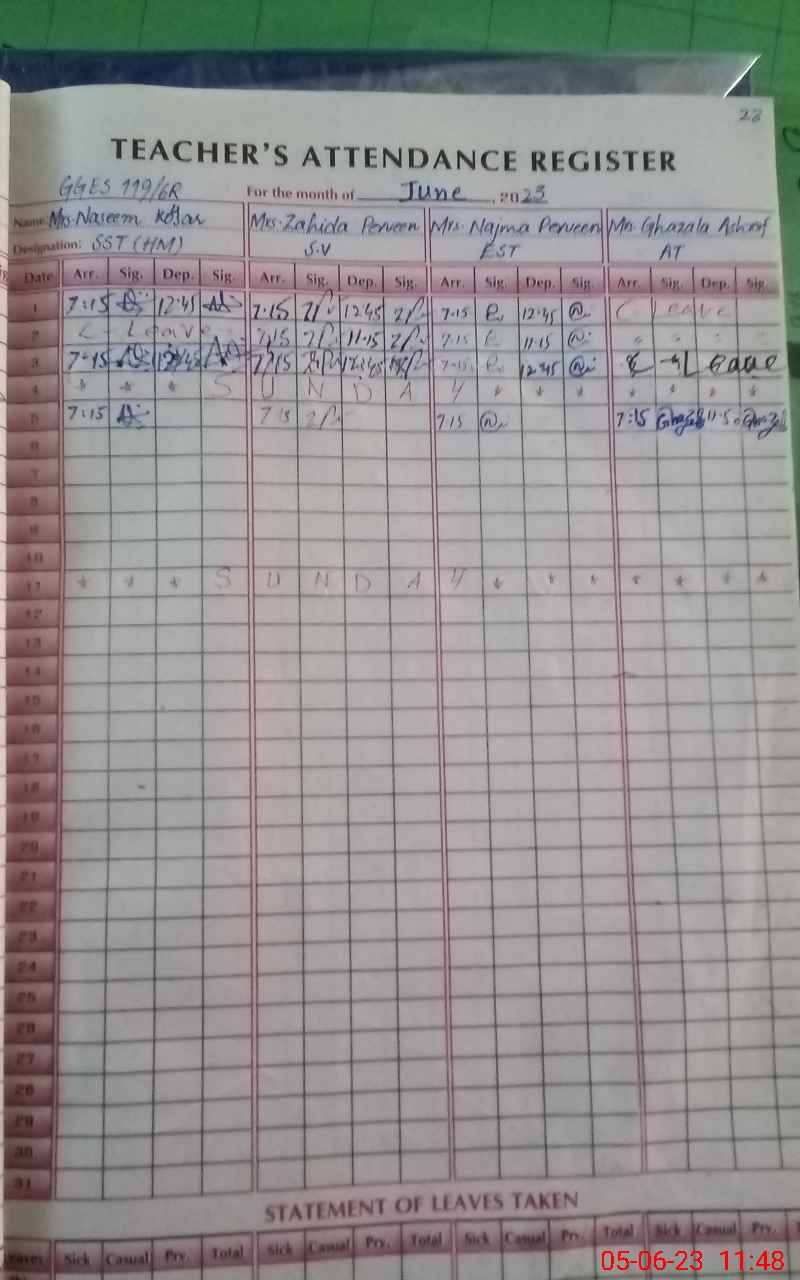 23
TEACHER'S ATTENDANCE REGISTER
GGES 119/6R For the month of June, 2023
Name: Mrs. Naseem Mrs. Zahida Perveen Mrs. Najma Perveen Mrs. Ghazala Ashraf
Designation: SST (HM) S.V EST AT
Date Arr. Sig. Dep. Sig. Arr. Sig. Dep. Sig. Arr. Sig. Dep. Sig. Arr. Sig. Dep. Sig.
1 7:15 12:45 7.15 12:45 7.15 12:45 C Leave
2 C - Leave 7.15 11.15 7.15 11.15 " " " "
3 7:15 12:45 7.15 12:45 7:15 12:45 C - Leave
4 * * * S U N D A Y * * * * * * *
5 7:15 7 15 7 15 7:15
6
7
8
9
10
11 * * * S U N D A Y * * * * * * *
12
13
14
15
16
17
18
19
20
21
22
23
24
25
26
27
28
29
30
31
STATEMENT OF LEAVES TAKEN
Leaves Sick Casual Prv. Total Sick Casual Prv. Total Sick Casual Prv. Total Sick Casual Prv.
05-06-23 11:48